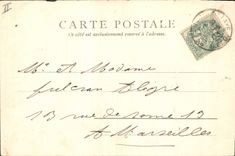 II
CARTE POSTALE
Ce côté est exclusivement réservé à l'adresse.
Mr & Madame
Fulcran Alègre
13 rue de Rome 13
A Marseilles